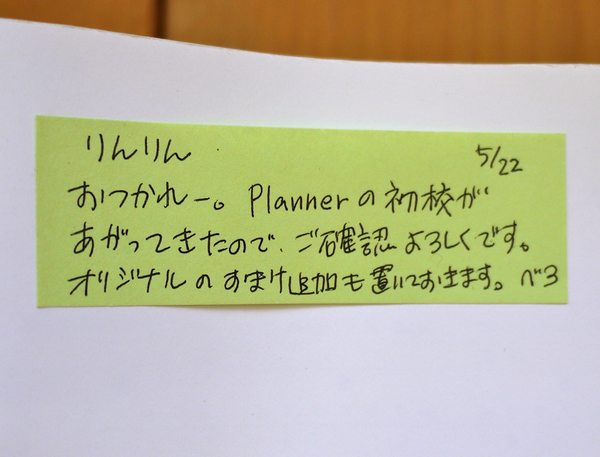 りんりん 5/22
おつかれー。Plannerの初校が
あがってきたので、ご確認よろしくです。
オリジナルのすまけ追加も置いておきます。べろ